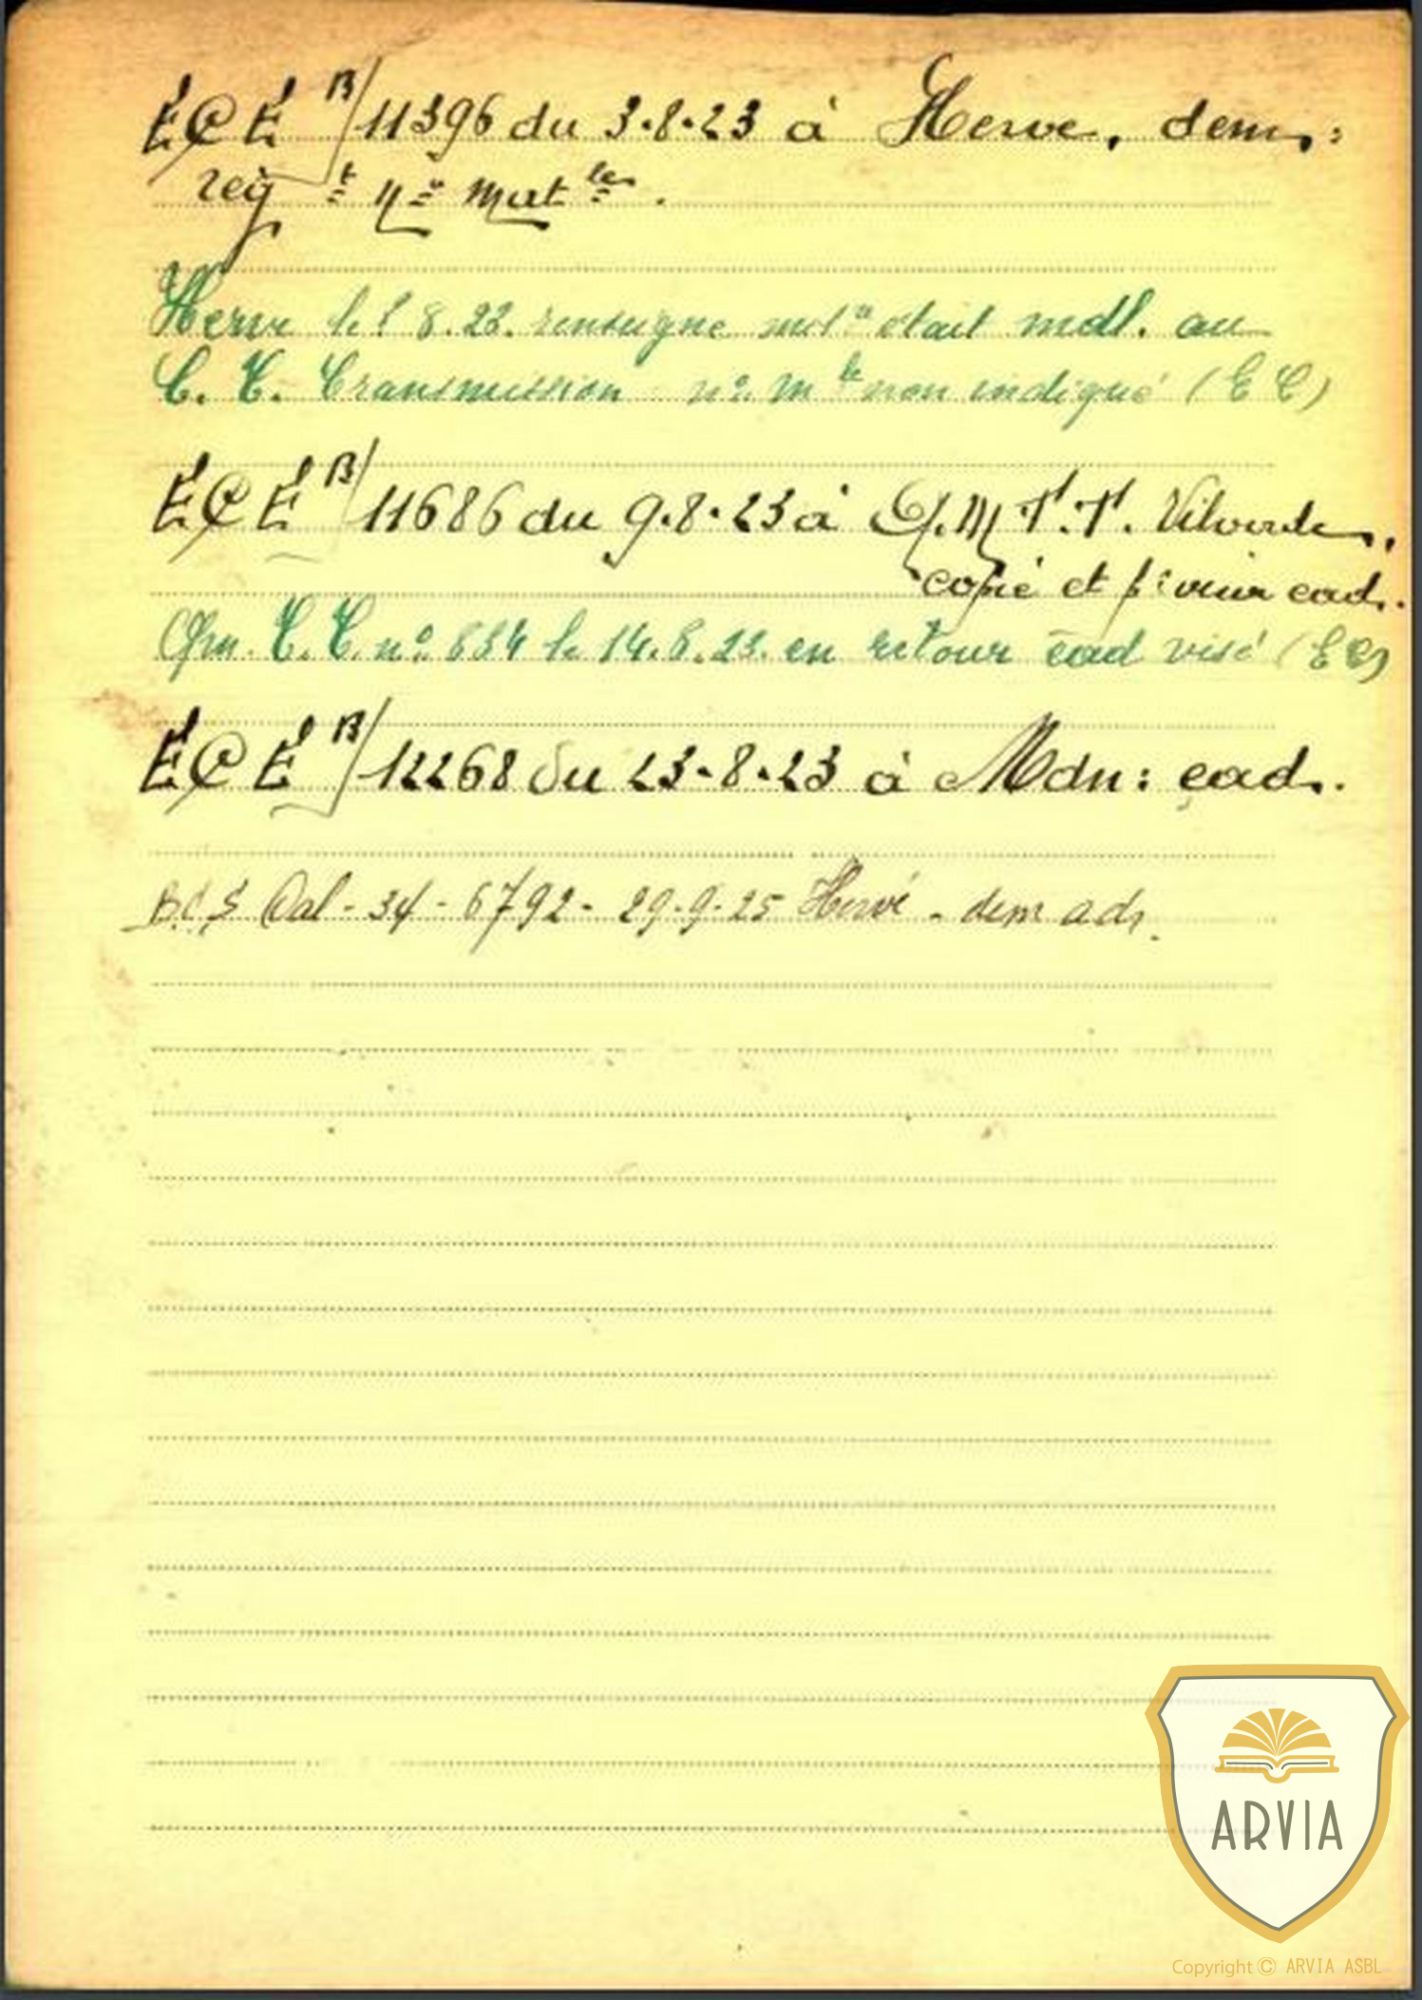 ECE B/ 11396 du 3.8.23 à Herve, dem:
regt no matle.
Herve le 8.23. renseigne était mdl. au
C. T. Transmission no. mle non indiqué (EC)
ECE B/ 11686 du 9.8.23 à T.T. Vilvorde,
copié et cad.
T.T. no 834 le 14.8.23. en retour cad visé (EC)
ECE B/ 12268 du 23.8.23 à Mdn: cad.
BCS Cal - 34 - 6792 - 29-9-25 Hervé - dem adr.
ARVIA
Copyright © ARVIA ASBL